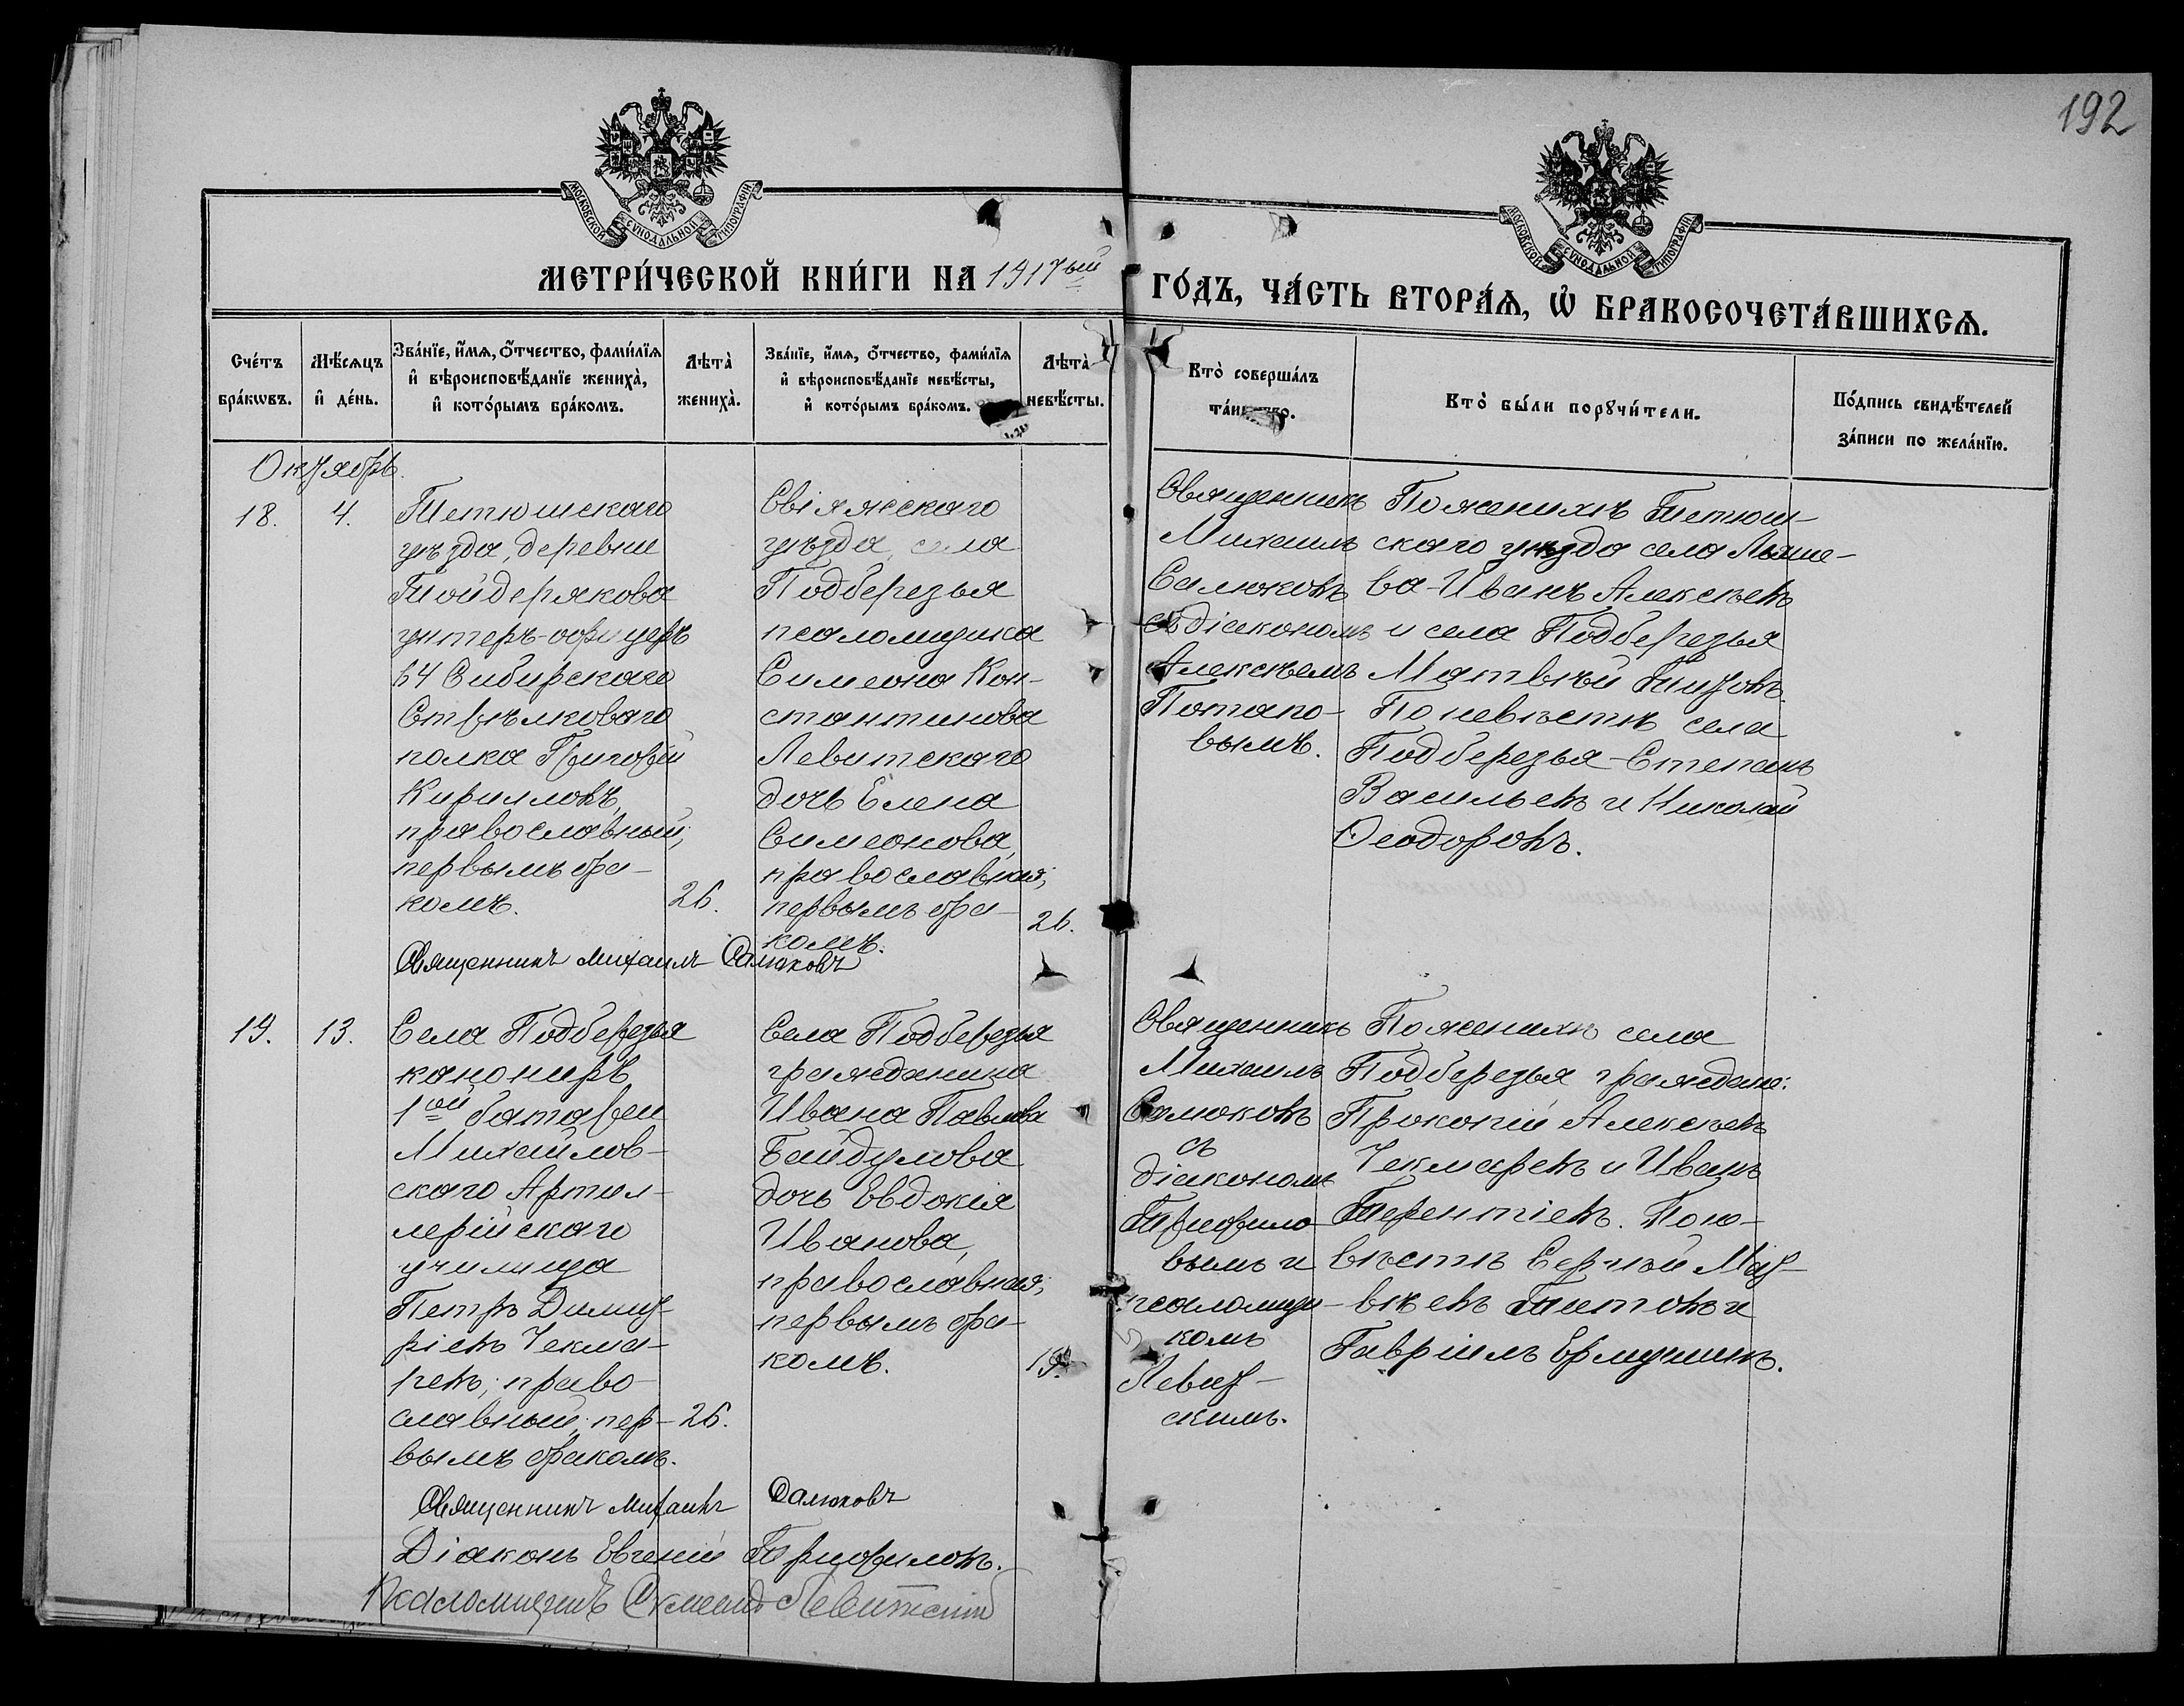 192
МОСКОВСКОЙ СѴНОДАЛЬНОЙ ТИПОГРАФІИ
МОСКОВСКОЙ СѴНОДАЛЬНОЙ ТИПОГРАФІИ
МЕТРИ́ЧЕСКОЙ КНИ́ГИ НА 1917ый ГО́ДЪ, ЧА́СТЬ ВТОРА́Ѧ, Ѡ҆ БРАКОСОЧЕТА́ВШИХСѦ.
Сче́тъ
бра́кѡвъ.
Мѣ́сѧцъ
и҆ де́нь.
Зва́нїе, и҆́мѧ, ѻ҆́тчество, фами́лїѧ
и҆ вѣроисповѣ́данїе жениха̀,
и҆ кото́рымъ бра́комъ.
Лѣта̀
жениха̀.
Зва́нїе, и҆́мѧ, ѻ҆́тчество, фами́лїѧ
и҆ вѣроисповѣ́данїе невѣ́сты,
и҆ кото́рымъ бра́комъ.
Лѣта̀
невѣ́сты.
Кто̀ соверша́лъ
та́инство.
Кто̀ бы́ли порꙋчи́тели.
По́дпись свидѣ́телей
за́писи по жела́нїю.
Октябрь.
18.
4.
Тетюшскаго
уѣзда, деревни
Тойдерякова
унтеръ-офицеръ
14 Сибирскаго
Стрѣлковаго
полка Григорій
Кирилловъ,
православный;
первымъ бра-
комъ.
26.
Свіяжскаго
уѣзда, села
Подберезья
псаломщика
Симеона Кон-
стантинова
Левитскаго
дочь Елена
Симеонова,
православная;
первымъ бра-
комъ.
26.
Священникъ
Михаилъ
Салюковъ
съ діакономъ
Алексѣемъ
Потапо-
вымъ.
По женихѣ Тетюш-
скаго уѣзда села
Иванъ Алексѣевъ
и села Подберезья
Матвѣй Титовъ.
По невѣстѣ села
Подберезья - Степанъ
Васильевъ и Николай
Ѳеодоровъ.
Священникъ Михаилъ Салюковъ
19.
13.
Села Подберезья
канониръ
1ой батареи
Михайлов-
скаго Артил-
лерійскаго
училища
Петръ Димит-
ріевъ Чекма-
ревъ; право-
славный; пер-
вымъ бракомъ.
26.
Села Подберезья
гражданина
Ивана Павлова
Байдулова
дочь Евдокія
Иванова,
православная;
первымъ бра-
комъ.
19.
Священникъ
Михаилъ
Салюковъ
съ
діакономъ
Трифило-
вымъ и
псаломщи-
комъ
Левит-
скимъ.
По женихѣ села
Подберезья граждане:
Прокопій Алексѣевъ
Чекмаревъ и Иванъ
Терентіевъ. По не-
вѣстѣ Сергѣй Мат-
вѣевъ Титовъ и
Гавріилъ Ермушинъ.
Священникъ Михаилъ Салюковъ
Діаконъ Евгеній Трифиловъ.
Псаломщикъ Симеонъ Левитскій